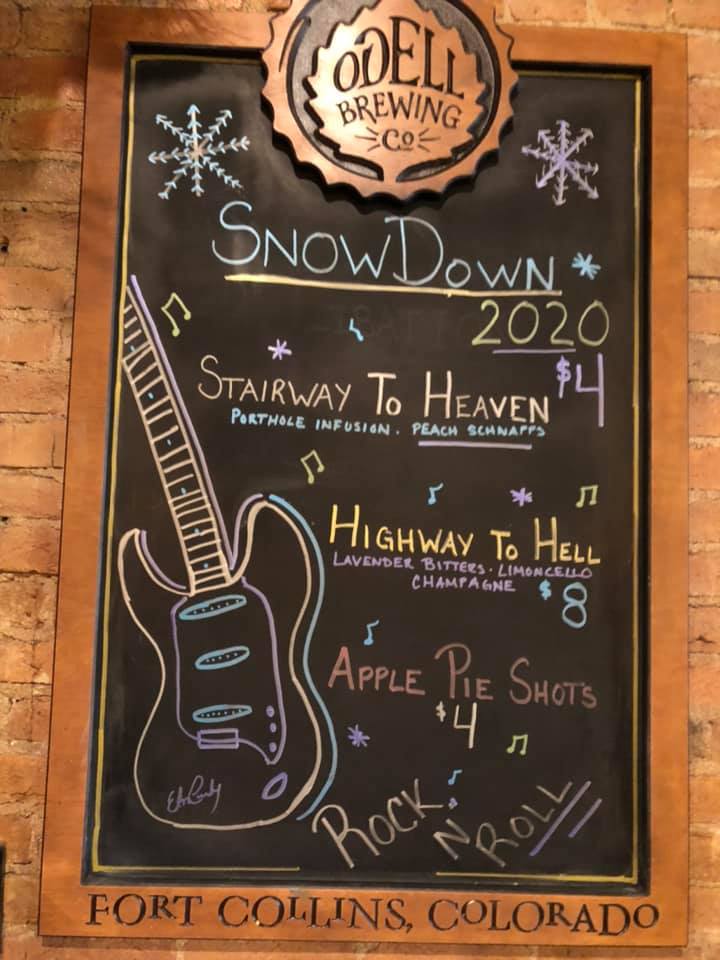 ODELL
BREWING
CO
SNOWDOWN
2020
STAIRWAY TO HEAVEN $4
PORTHOLE INFUSION . PEACH SCHNAPPS
HIGHWAY TO HELL
LAVENDER BITTERS . LIMONCELLO
CHAMPAGNE $8
APPLE PIE SHOTS
$4
ROCK
N
ROLL
FORT COLLINS, COLORADO